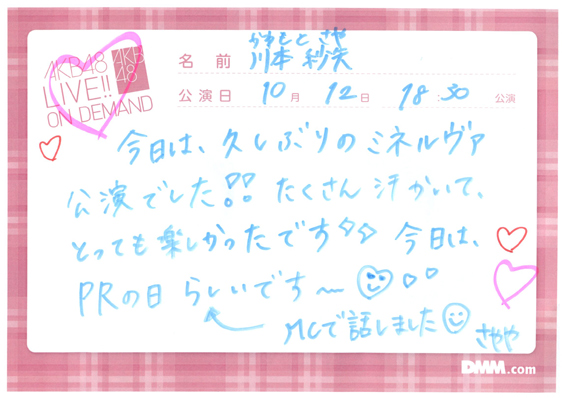 AKB48
LIVE!!
ON DEMAND
AKB
48
かわもと さや
名前 川本 紗矢
公演日 10月 12日 18:30 公演
今日は、久しぶりのミネルヴァ
公演でした!! たくさん汗かいて、
とっても楽しかったです 今日は、
PRの日 らしいです〜
MCで話しました
さやや
DMM.com